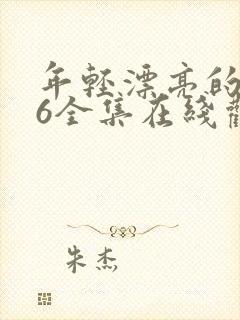 年轻漂亮的
6全集在线
朱杰